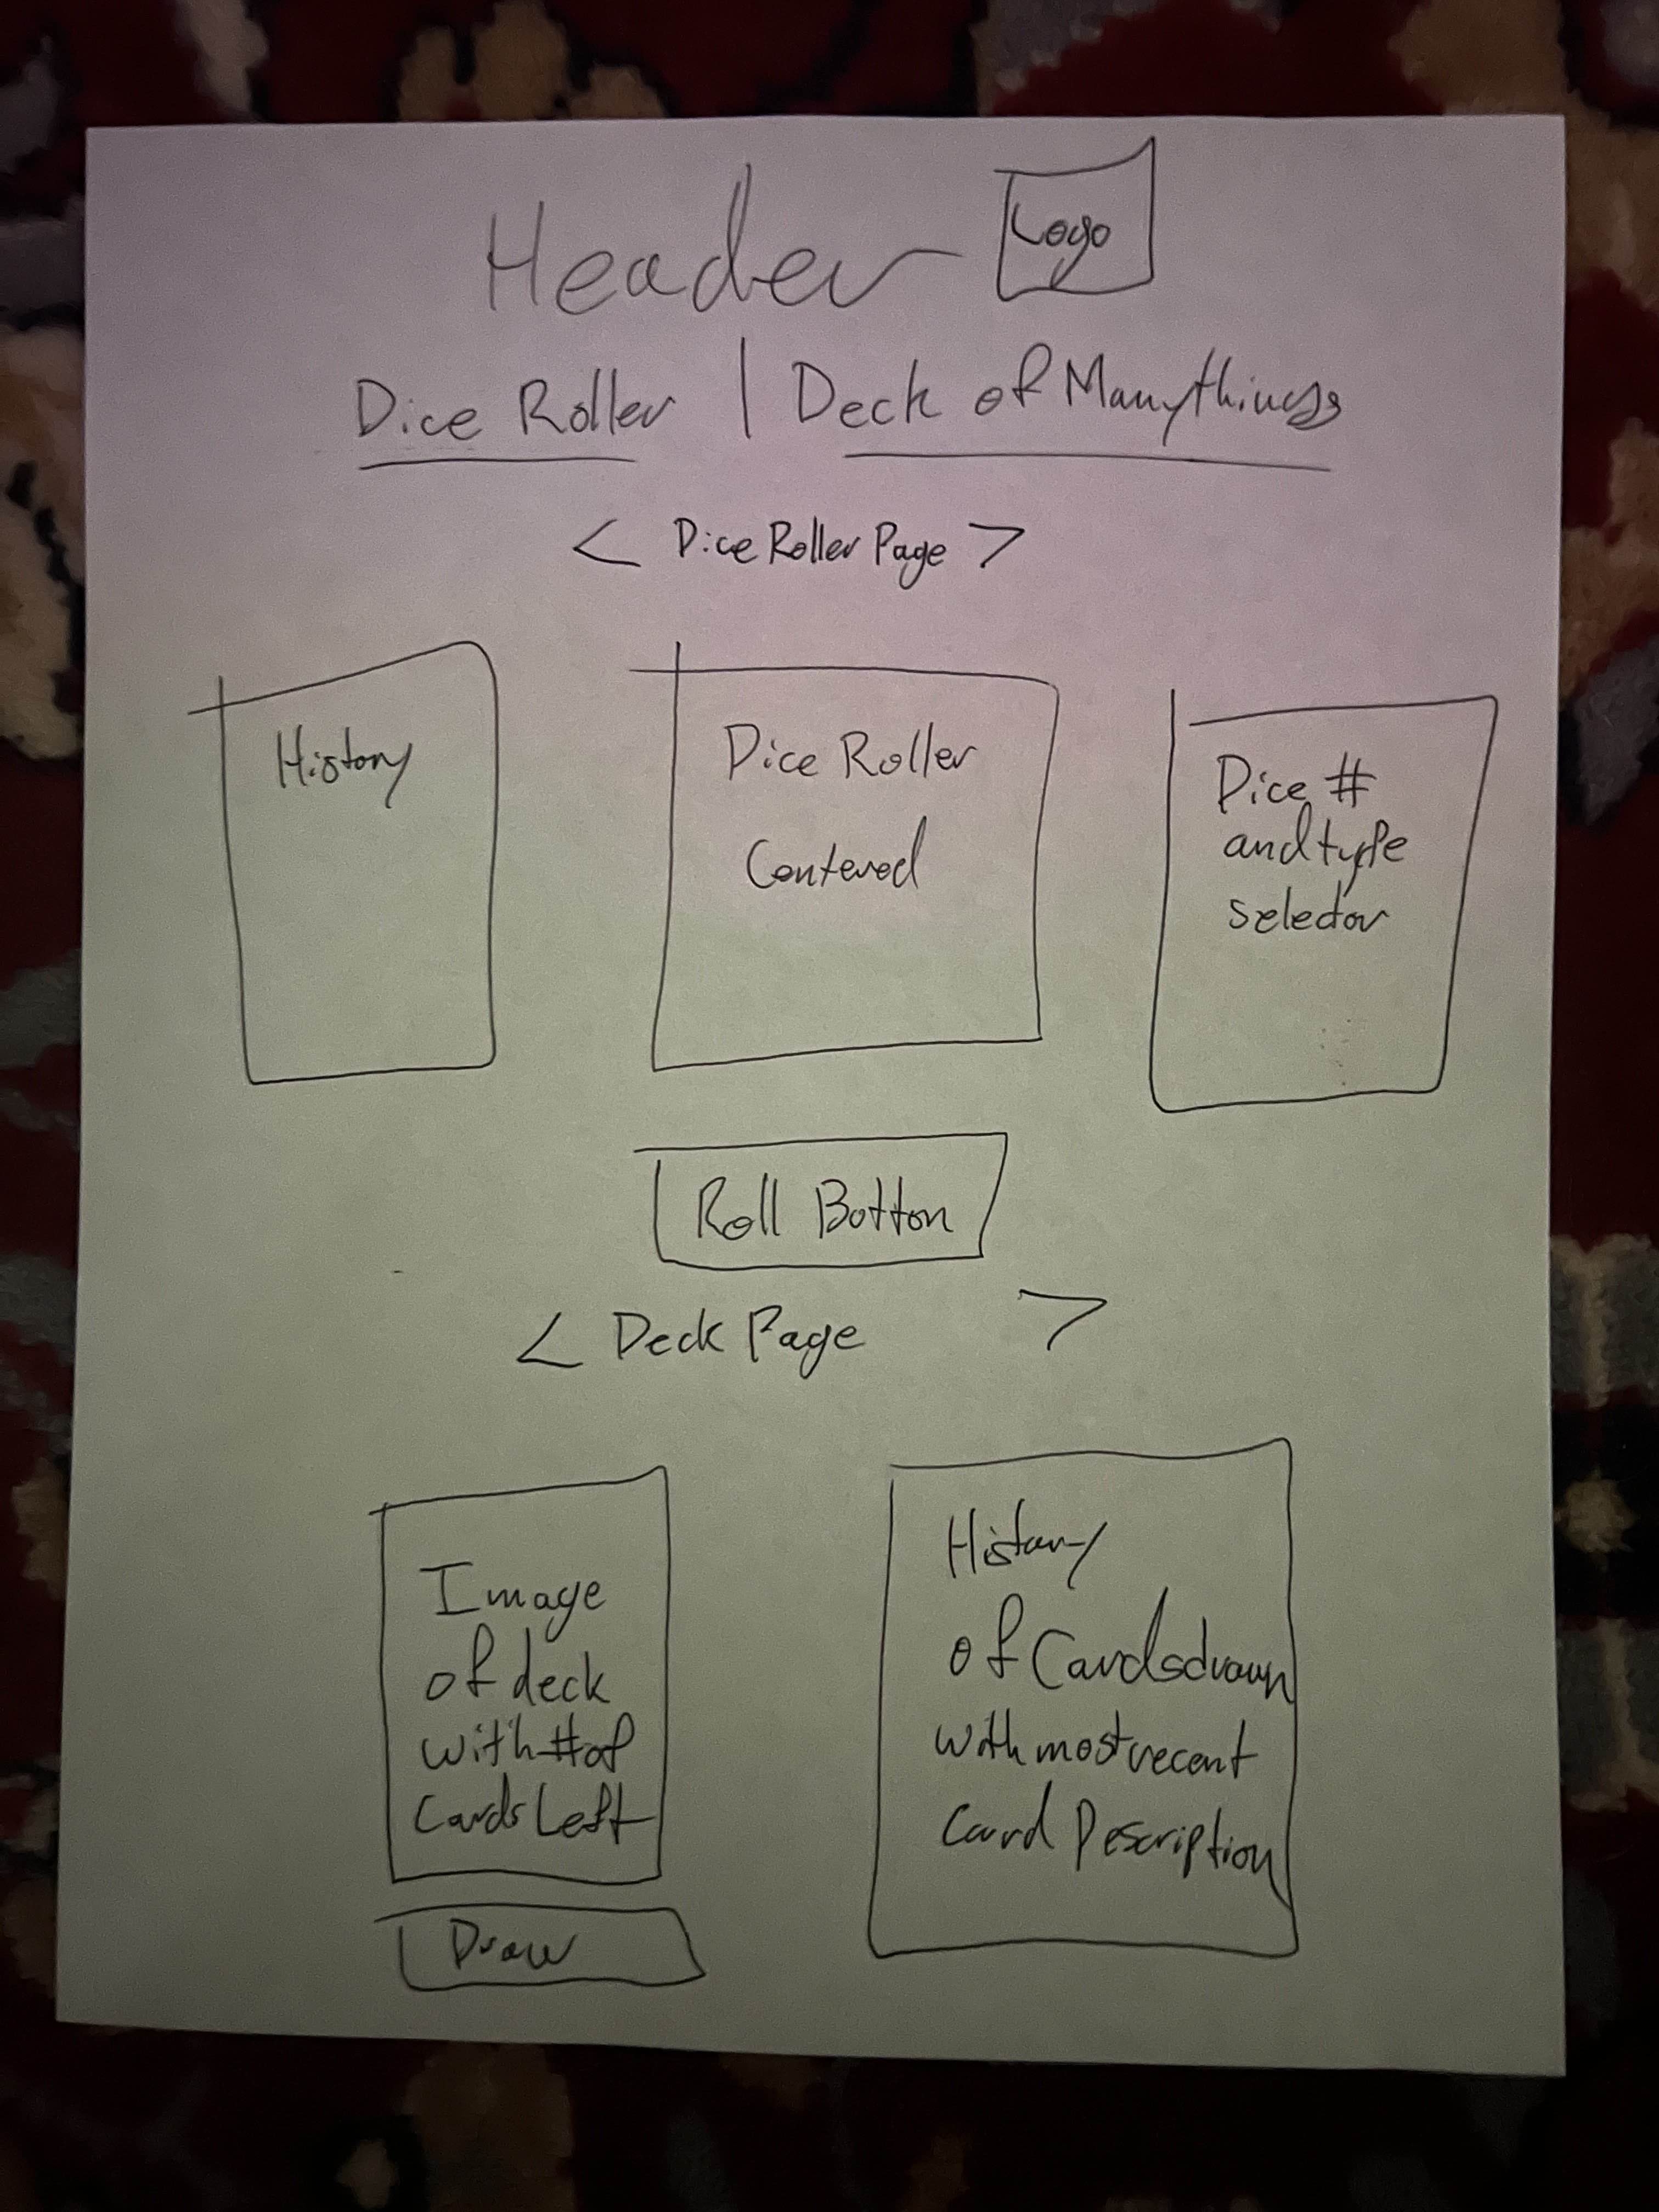 Header
Logo
Dice Roller | Deck of Manythings
< Dice Roller Page >
History
Dice Roller
Centered
Dice #
and type
selector
Roll Button
< Deck Page >
Image
of deck
with # of
Cards Left
Draw
History
of Cards drawn
with most recent
Card Description